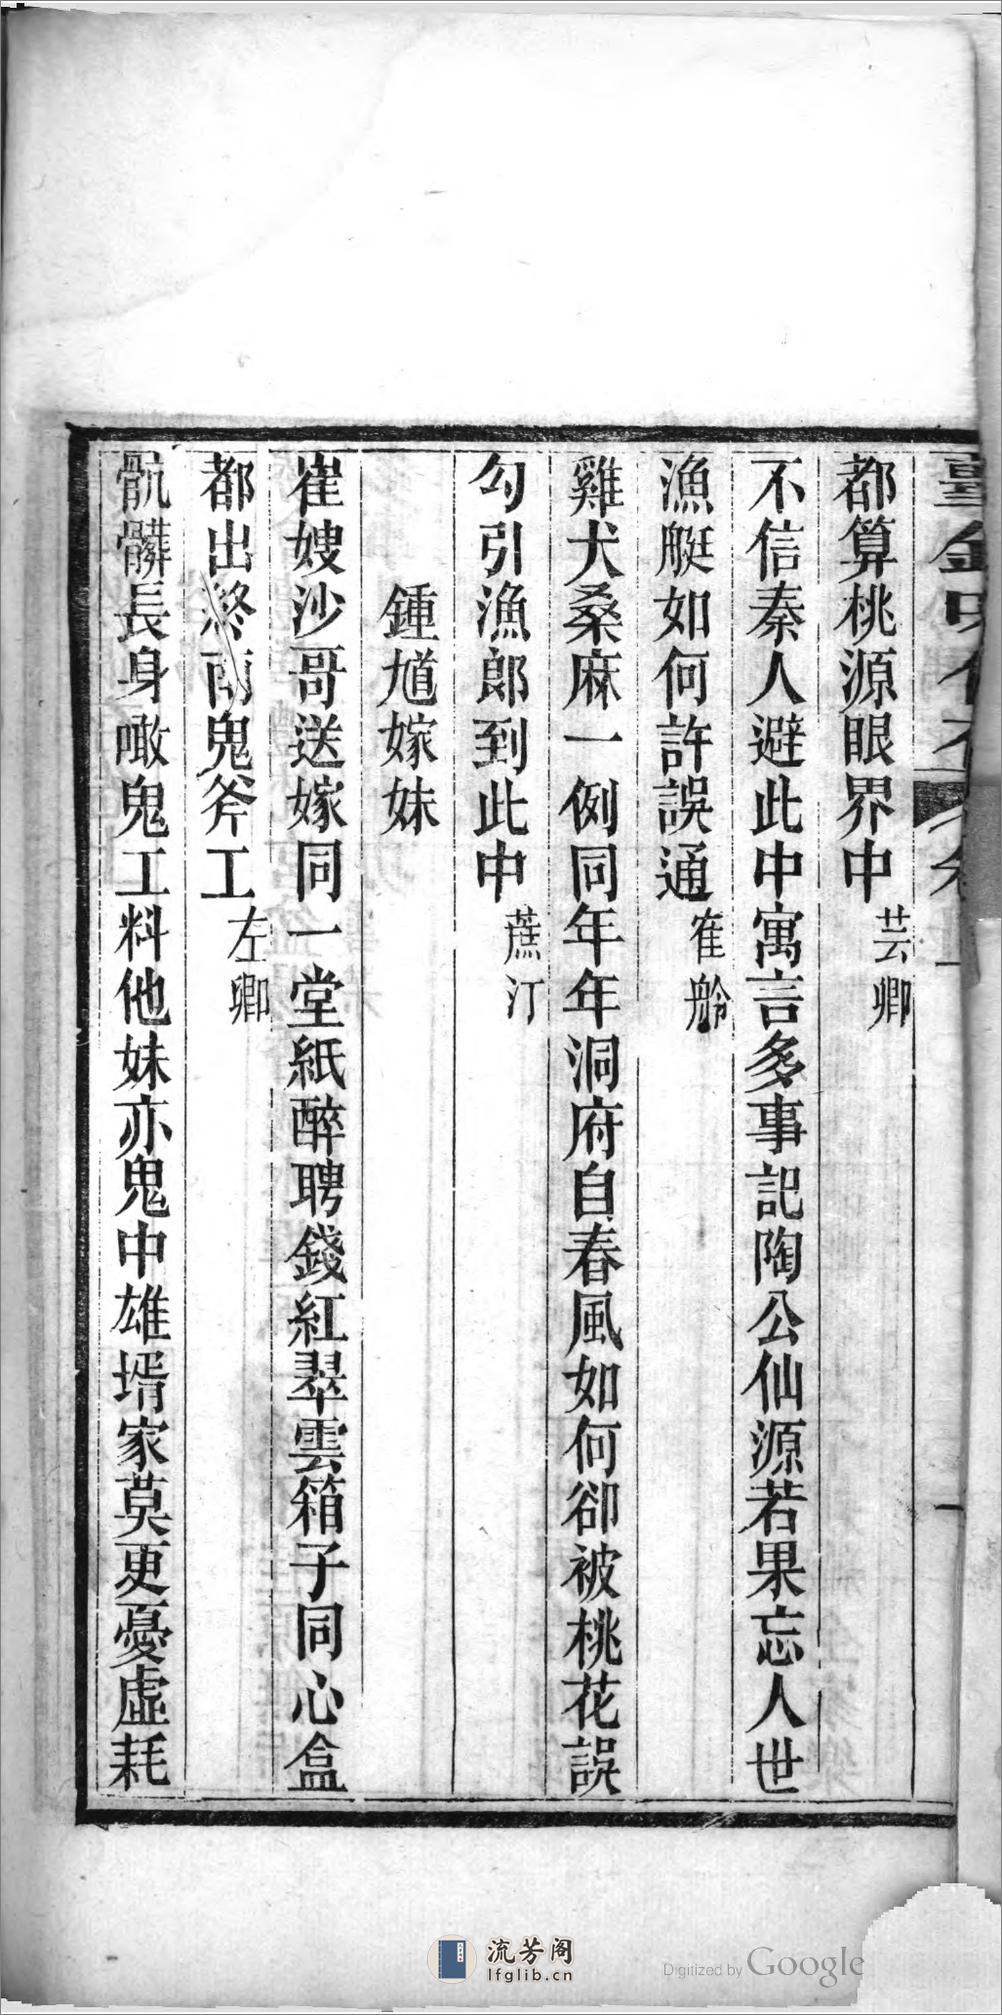 都算桃源眼界中 芸卿
不信秦人避此中寓言多事記陶公仙源若果忘人世
漁艇如何許誤通 隺舲
雞犬桑麻一例同年年洞府自春風如何卻被桃花誤
勾引漁郎到此中 蔗汀
鍾馗嫁妹
崔嫂沙哥送嫁同一堂紙醉聘錢紅翠雲箱子同心盒
都出終南鬼斧工 左卿
骯髒長身噉鬼工料他妹亦鬼中雄壻家莫更憂虛耗
流芳阁
lfglib.cn
Digitized by Google